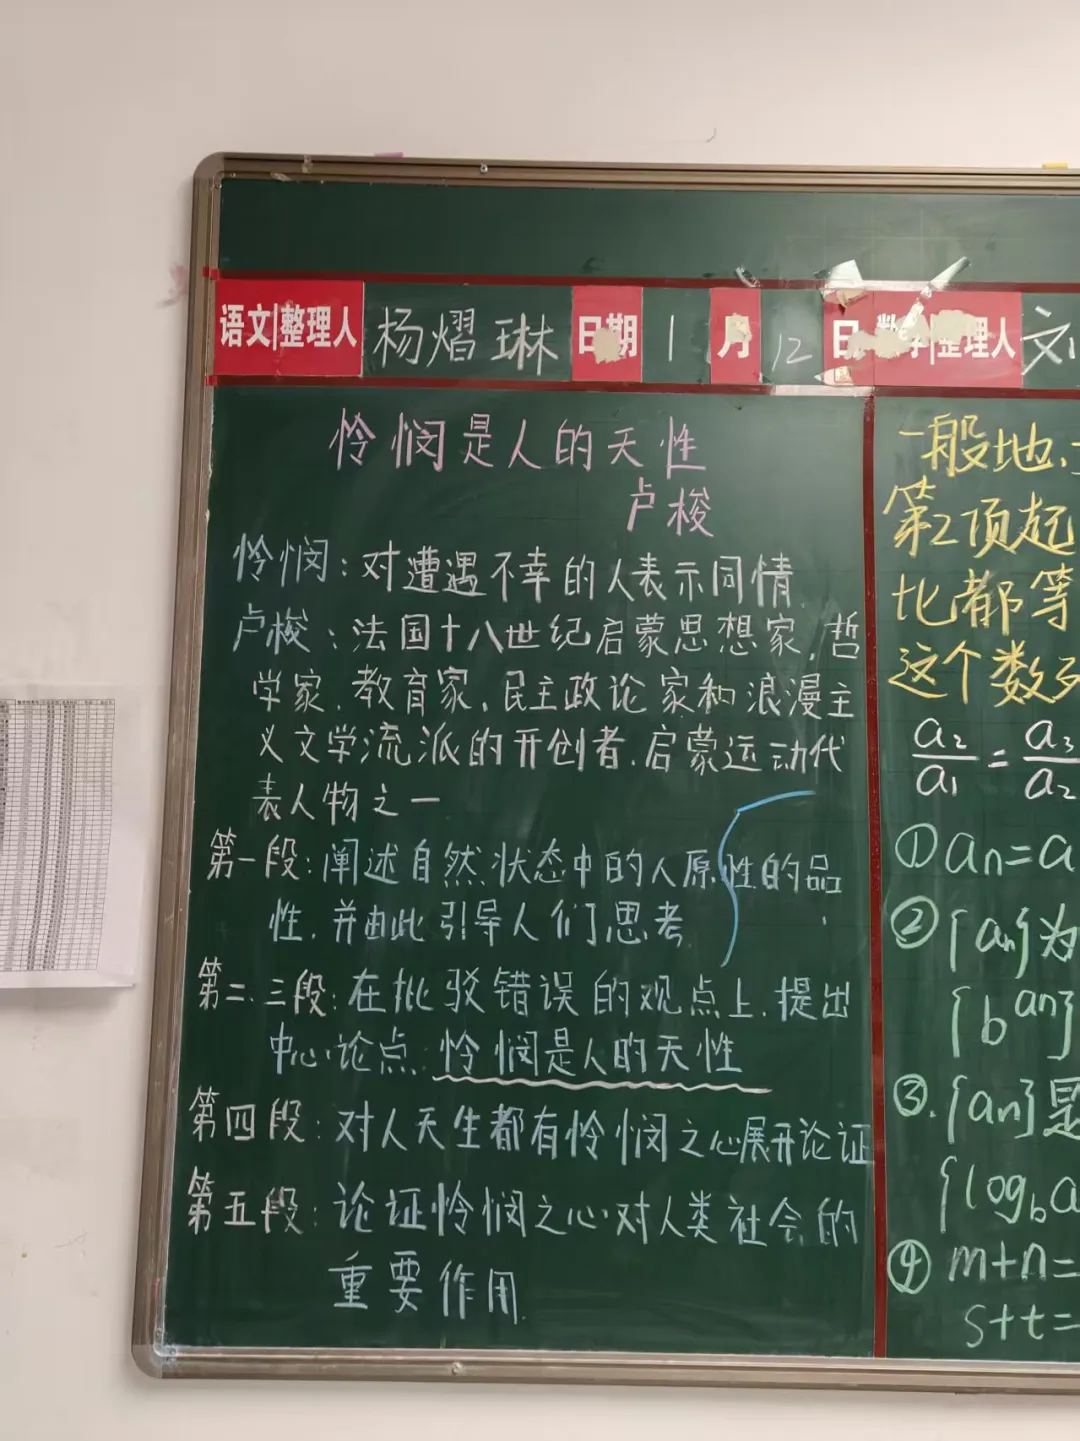 语文|整理人 杨熠琳 日期 1 月 12 日 数学|整理人
怜悯是人的天性
卢梭
怜悯:对遭遇不幸的人表示同情
卢梭:法国十八世纪启蒙思想家、哲
学家、教育家、民主政论家和浪漫主
义文学流派的开创者、启蒙运动代
表人物之一
第一段:阐述自然状态中的人原性的品
性,并由此引导人们思考
第二、三段:在批驳错误的观点上,提出
中心论点:怜悯是人的天性
第四段:对人天生都有怜悯之心展开论证
第五段:论证怜悯之心对人类社会的
重要作用
一般地、
第2项起
比都等
这个数列
a₂/a₁ = a₃/a₂
①aₙ=a
②{aₙ}为
{b^aₙ}
③.{aₙ}是
{log_b a
④m+n=
s+t=